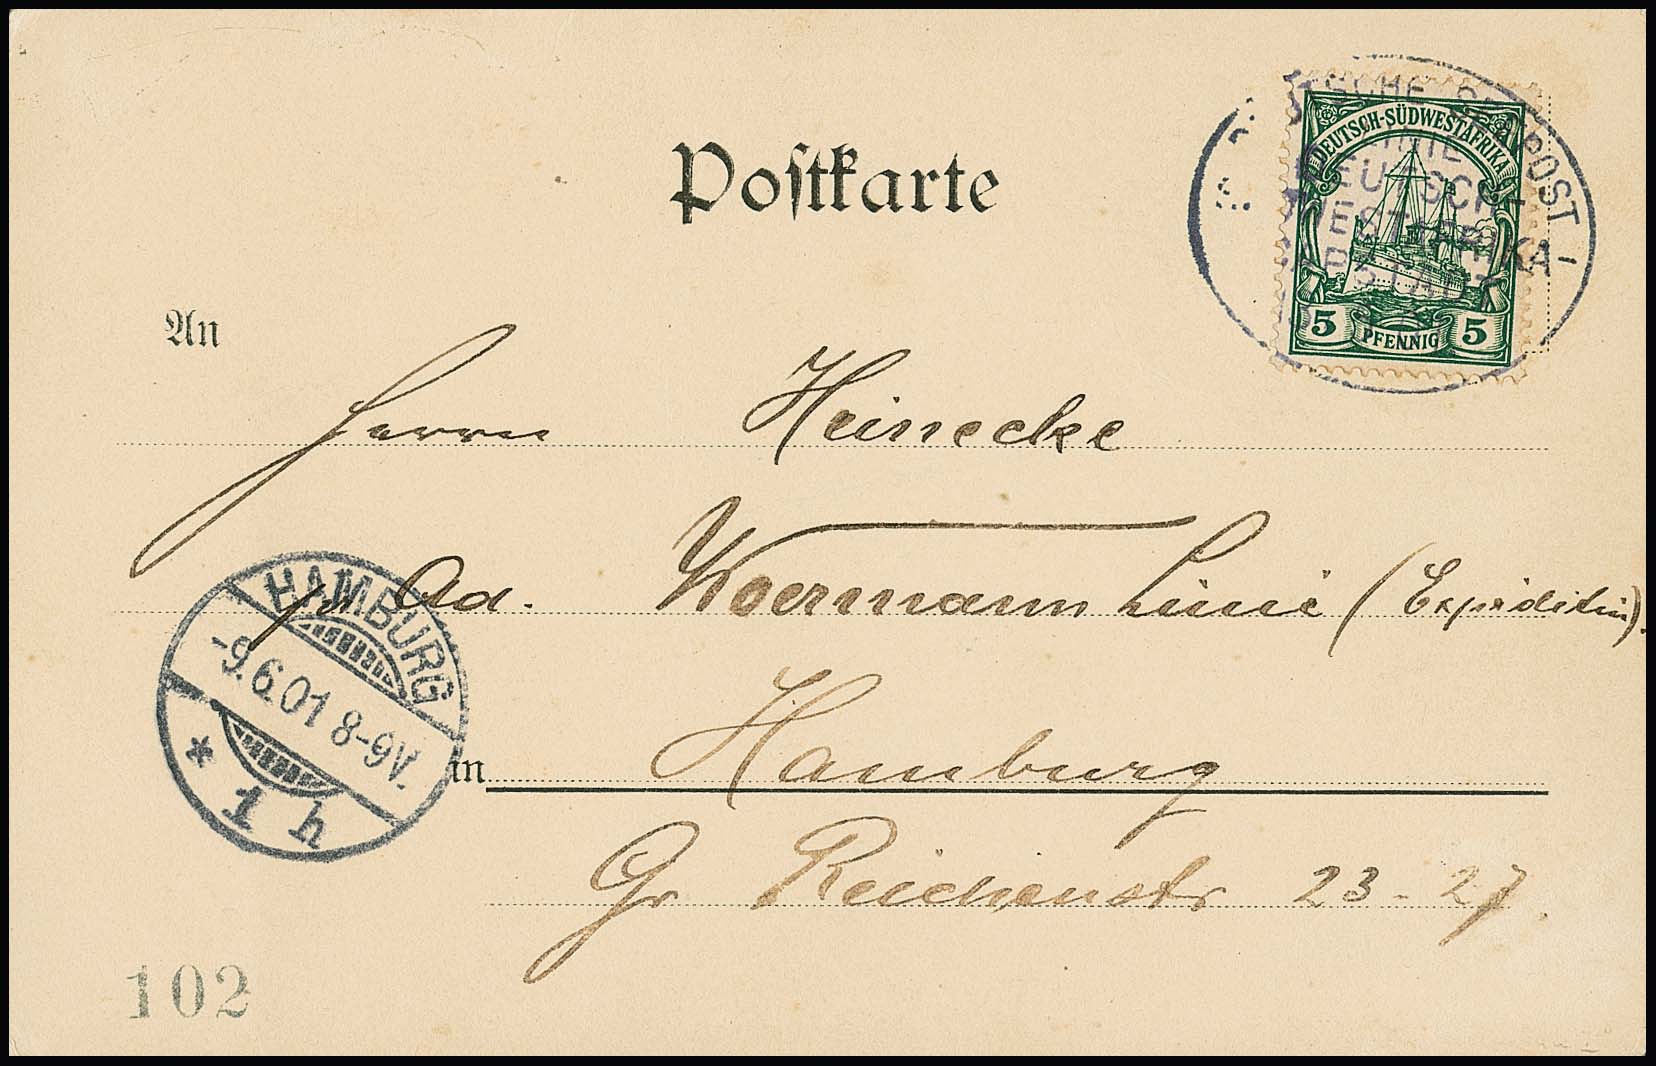 Postkarte
DEUTSCH-SÜDWESTAFRIKA
5 PFENNIG 5
An
Herrn Heinecke
pr. Ad. Woermann Linie (Expedition).
HAMBURG
-9.6.01 8-9V.
* 1 h
in Hamburg
Gr Reichenstr 23-27.
102